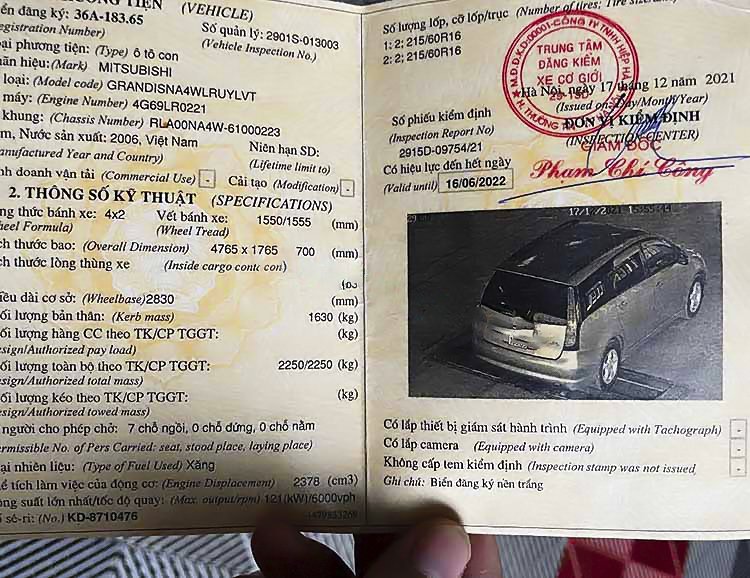 (VEHICLE)
ển đăng ký: 36A-183.65
egistration Number)
Số quản lý: 2901S-013003
(Vehicle Inspection No.)
ại phương tiện: (Type) ô tô con
ãn hiệu:(Mark) MITSUBISHI
loại: (Model code) GRANDISNA4WLRUYLVT
máy: (Engine Number) 4G69LR0221
khung: (Chassis Number) RLA00NA4W-61000223
m, Nước sản xuất: 2006, Việt Nam
anufactured Year and Country)
Niên hạn SD:
(Lifetime limit to)
nh doanh vận tải (Commercial Use) - Cải tạo (Modification) -
2. THÔNG SỐ KỸ THUẬT (SPECIFICATIONS)
ng thức bánh xe: 4x2 Vết bánh xe: 1550/1555 (mm)
heel Formula) (Wheel Tread)
ch thước bao: (Overall Dimension) 4765 x 1765 700 (mm)
ch thước lòng thùng xe (Inside cargo
iều dài cơ sở: (Wheelbase)2830 (mm)
ối lượng bản thân: (Kerb mass) 1630 (kg)
ối lượng hàng CC theo TK/CP TGGT: (kg)
esign/Authorized pay load)
ối lượng toàn bộ theo TK/CP TGGT: 2250/2250 (kg)
esign/Authorized total mass)
ối lượng kéo theo TK/CP TGGT: (kg)
esign/Authorized towed mass)
người cho phép chở: 7 chỗ ngồi, 0 chỗ đứng, 0 chỗ nằm
ermissible No. of Pers Carried: seat, stood place, laying place)
ại nhiên liệu: (Type of Fuel Used) Xăng
ể tích làm việc của động cơ: (Engine Displacement) 2378 (cm3)
ng suất lớn nhất/tốc độ quay: (Max. output/rpm) 121(kW)/6000vph
ố sê-ri: (No.) KD-8710476
Số lượng lốp, cỡ lốp/trục (Number of tires; Tire size/
1: 2; 215/60R16
2: 2; 215/60R16
TRUNG TÂM
ĐĂNG KIỂM
XE CƠ GIỚI
Hà Nội, ngày 17 tháng 12 năm 2021
(Issued on: Day/Month/Year)
Số phiếu kiểm định
(Inspection Report No)
2915D-09754/21
ĐƠN VỊ KIỂM ĐỊNH
(INSPECTION CENTER)
GIÁM ĐỐC
Có hiệu lực đến hết ngày
(Valid until) 16/06/2022
Phạm Chí Công
Có lắp thiết bị giám sát hành trình (Equipped with Tachograph) -
Có lắp camera (Equipped with camera) -
Không cấp tem kiểm định (Inspection stamp was not issued) -
Ghi chú: Biển đăng ký nền trắng